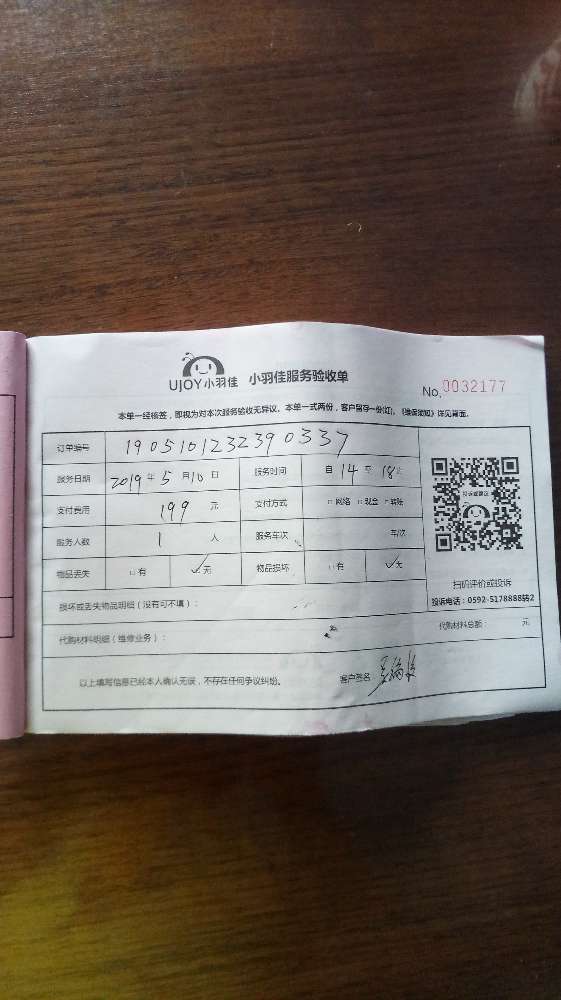 UJOY小羽佳 小羽佳服务验收单
No.0032177
本单一经核签，即视为对本次服务验收无异议。本单一式两份，客户留存一份(红)，《维保须知》详见背面。
订单编号 190510123239 0337
服务日期 2019年5月10日 服务时间 自14至18
支付费用 199 元 支付方式 □网络 □现金 □转账
服务人数 1 人 服务车次 车/次
物品丢失 □有 ☑无 物品损坏 □有 ☑无
投诉或建议
扫码评价或投诉
投诉电话：0592-5178888转2
损坏或丢失物品明细（没有可不填）：
代购材料明细（维修业务）： 代购材料总额： 元
以上填写信息已经本人确认无误，不存在任何争议纠纷。 客户签名